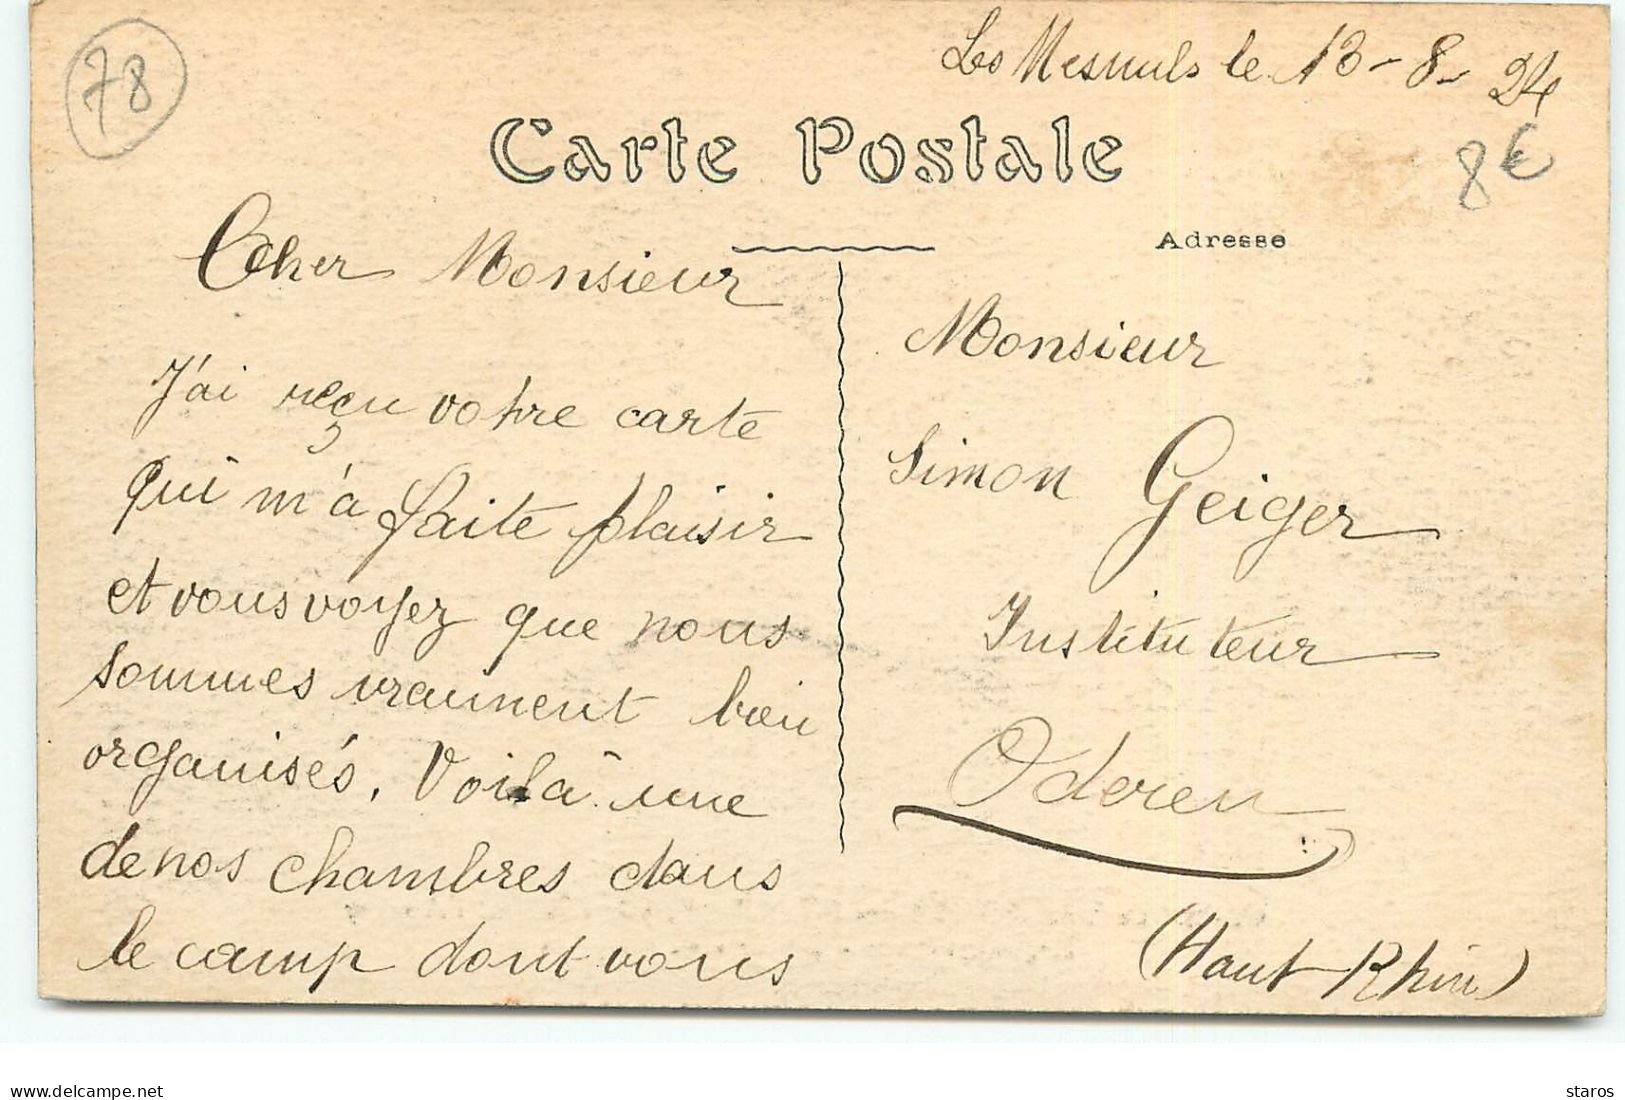 78
Les Mesnuls le 13-8-24
8€
Carte Postale
Adresse
Cher Monsieur
J'ai reçu votre carte
qui m'a faite plaisir
et vous voyez que nous
sommes vraiment bien
organisés. Voilà une
de nos chambres dans
le camp dont vous
Monsieur
Simon Geiger
Instituteur
Oderen
(Haut-Rhin)
www.delcampe.net
staros